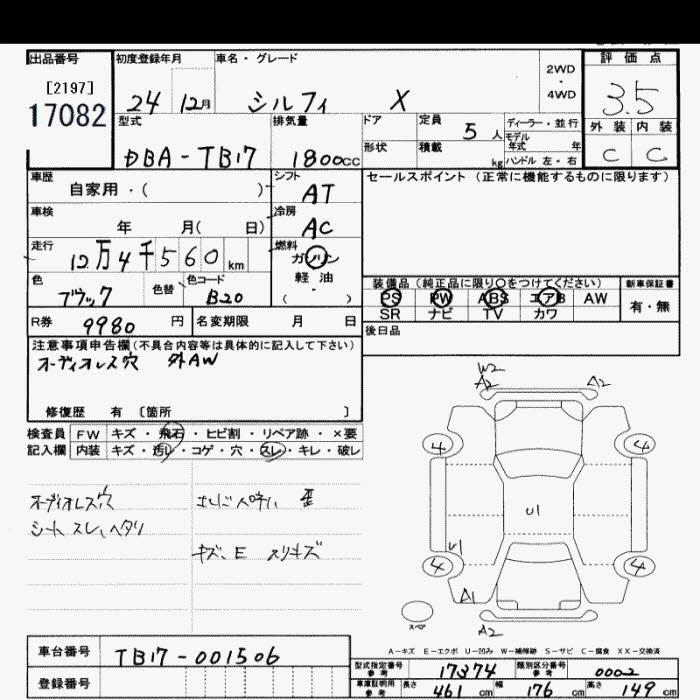 出品番号 初度登録年月 車名・グレード 2WD・4WD 評価点
[2197]
17082 24 12月 シルフィ X 3.5
型式 排気量 ドア 定員 5人 ディーラー・並行 外装 内装
モデル年式 年
DBA-TB17 1800cc 形状 積載 kg ハンドル 左・右 C C
車歴 自家用・( ) シフト AT セールスポイント (正常に機能するものに限ります)
車検 年 月( 日) 冷房 AC
走行 12万4千560km 燃料 ガソリン
軽油
( )
色 ブラック 色替 色コード B20 装備品 (純正品に限り〇をつけてください) 新車保証書
PS PW ABS エアB AW 有・無
SR ナビ TV カワ
R券 9980円 名変期限 月 日 後日品
注意事項申告欄(不具合内容等は具体的に記入して下さい)
オーディオレス穴 外AW
修復歴 有 [箇所 ]
検査員 FW キズ・飛石・ヒビ割・リペア跡・×要
記入欄 内装 キズ・汚レ・コゲ・穴・スレ・キレ・破レ
W2
A2 A2
4 4
U1
U1
4 4
A1
スペア
A2
オーディオレス穴 歪
シート スレ、ヘタリ
キズ、E スリキズ
A-キズ E-エクボ U-凹み W-補修跡 S-サビ C-腐食 XX-交換済
車台番号 TB17-001506
型式指定番号 参考 17374 類別区分番号 参考 0002
登録番号
車庫証明用 参考 長さ 461cm 幅 176cm 高さ 149cm